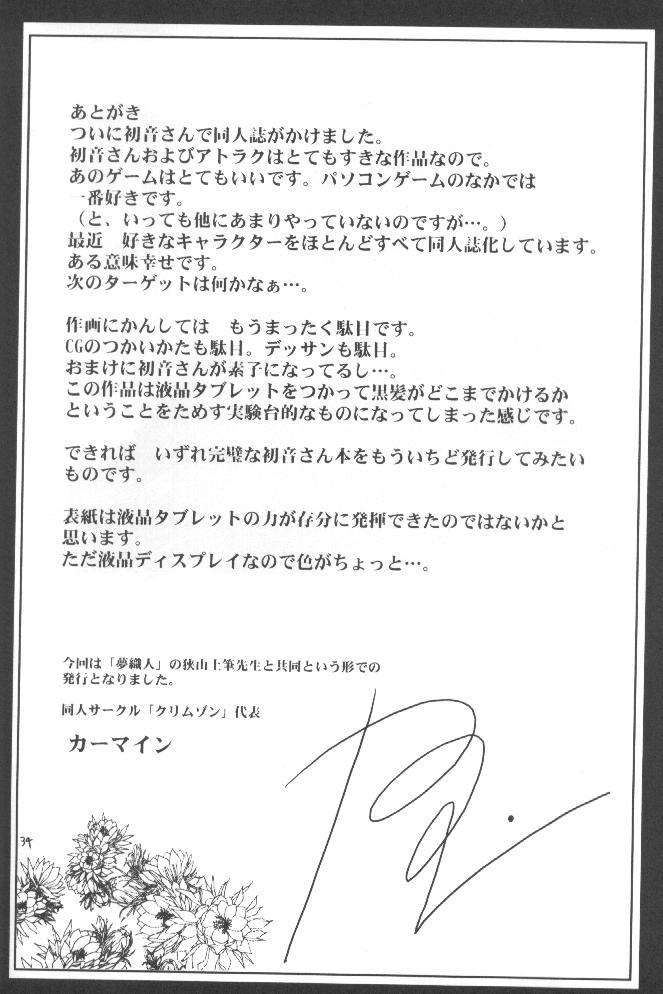 あとがき
ついに初音さんで同人誌がかけました。
初音さんおよびアトラクはとてもすきな作品なので。
あのゲームはとてもいいです。パソコンゲームのなかでは
一番好きです。
（と、いっても他にあまりやっていないのですが…。）
最近　好きなキャラクターをほとんどすべて同人誌化しています。
ある意味幸せです。
次のターゲットは何かなぁ…。
作画にかんしては　もうまったく駄目です。
CGのつかいかたも駄目。デッサンも駄目。
おまけに初音さんが素子になってるし…。
この作品は液晶タブレットをつかって黒髪がどこまでかけるか
ということをためす実験台的なものになってしまった感じです。
できれば　いずれ完璧な初音さん本をもういちど発行してみたい
ものです。
表紙は液晶タブレットの力が存分に発揮できたのではないかと
思います。
ただ液晶ディスプレイなので色がちょっと…。
今回は「夢織人」の狭山土筆先生と共同という形での
発行となりました。
同人サークル「クリムゾン」代表
カーマイン
34